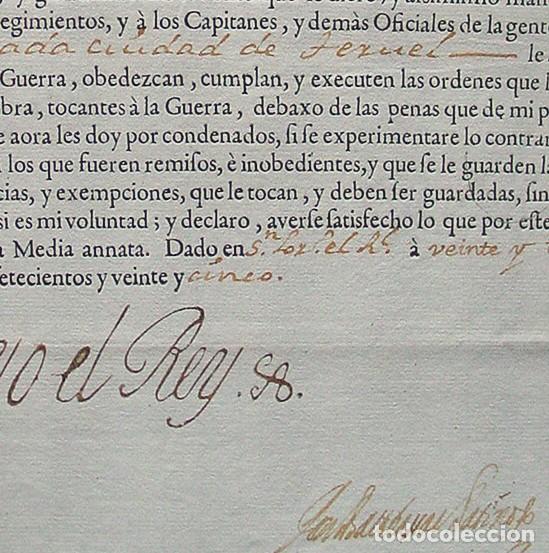 egimientos, y à los Capitanes, y demàs Oficiales de la gent
ada ciudad de Teruel — le
Guerra, obedezcan, cumplan, y executen las ordenes que
bra, tocantes à la Guerra, debaxo de las penas que de mi p
e aora les doy por condenados, ſi ſe experimentare lo contrar
los que fueren remiſos, è inobedientes, y que ſe le guarden la
cias, y exempciones, que le tocan, y deben ſer guardadas, ſin
si es mi voluntad; y declaro, averſe ſatisfecho lo que por eſte
a Media annata. Dado en Sn. Lorº. el Rl. à veinte y
etecientos y veinte y cinco.
yo el Rey.
todocoleccion